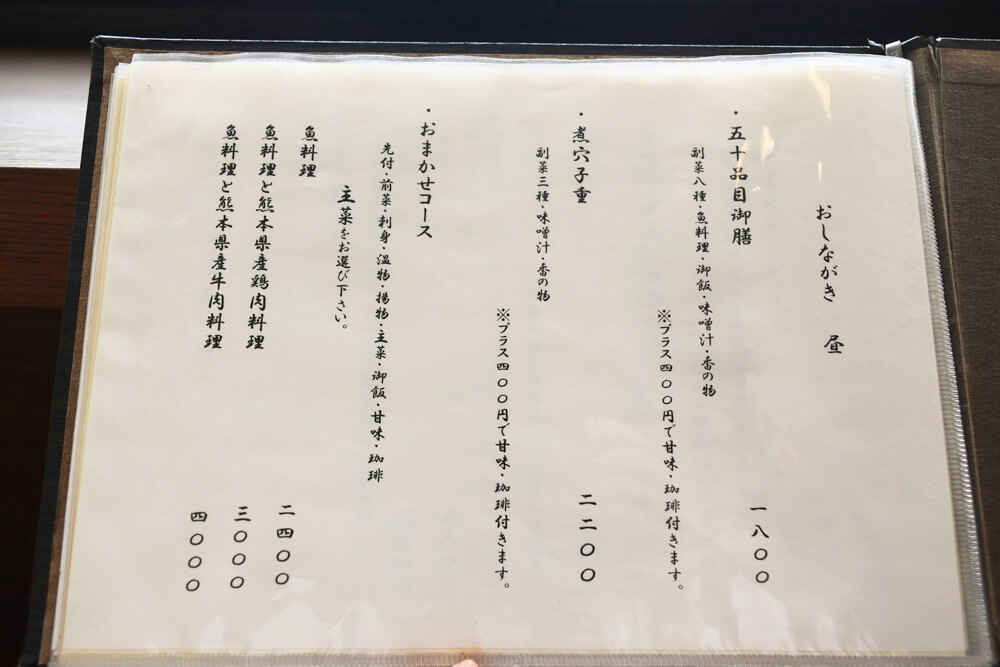 おしながき　昼
・五十品目御膳　一八〇〇
副菜八種・魚料理・御飯・味噌汁・香の物
※プラス四〇〇円で甘味・珈琲付きます。
・煮穴子重　二二〇〇
副菜三種・味噌汁・香の物
※プラス四〇〇円で甘味・珈琲付きます。
・おまかせコース
先付・前菜・刺身・温物・揚物・主菜・御飯・甘味・珈琲
主菜をお選び下さい。
魚料理　二四〇〇
魚料理と熊本県産鶏肉料理　三〇〇〇
魚料理と熊本県産牛肉料理　四〇〇〇